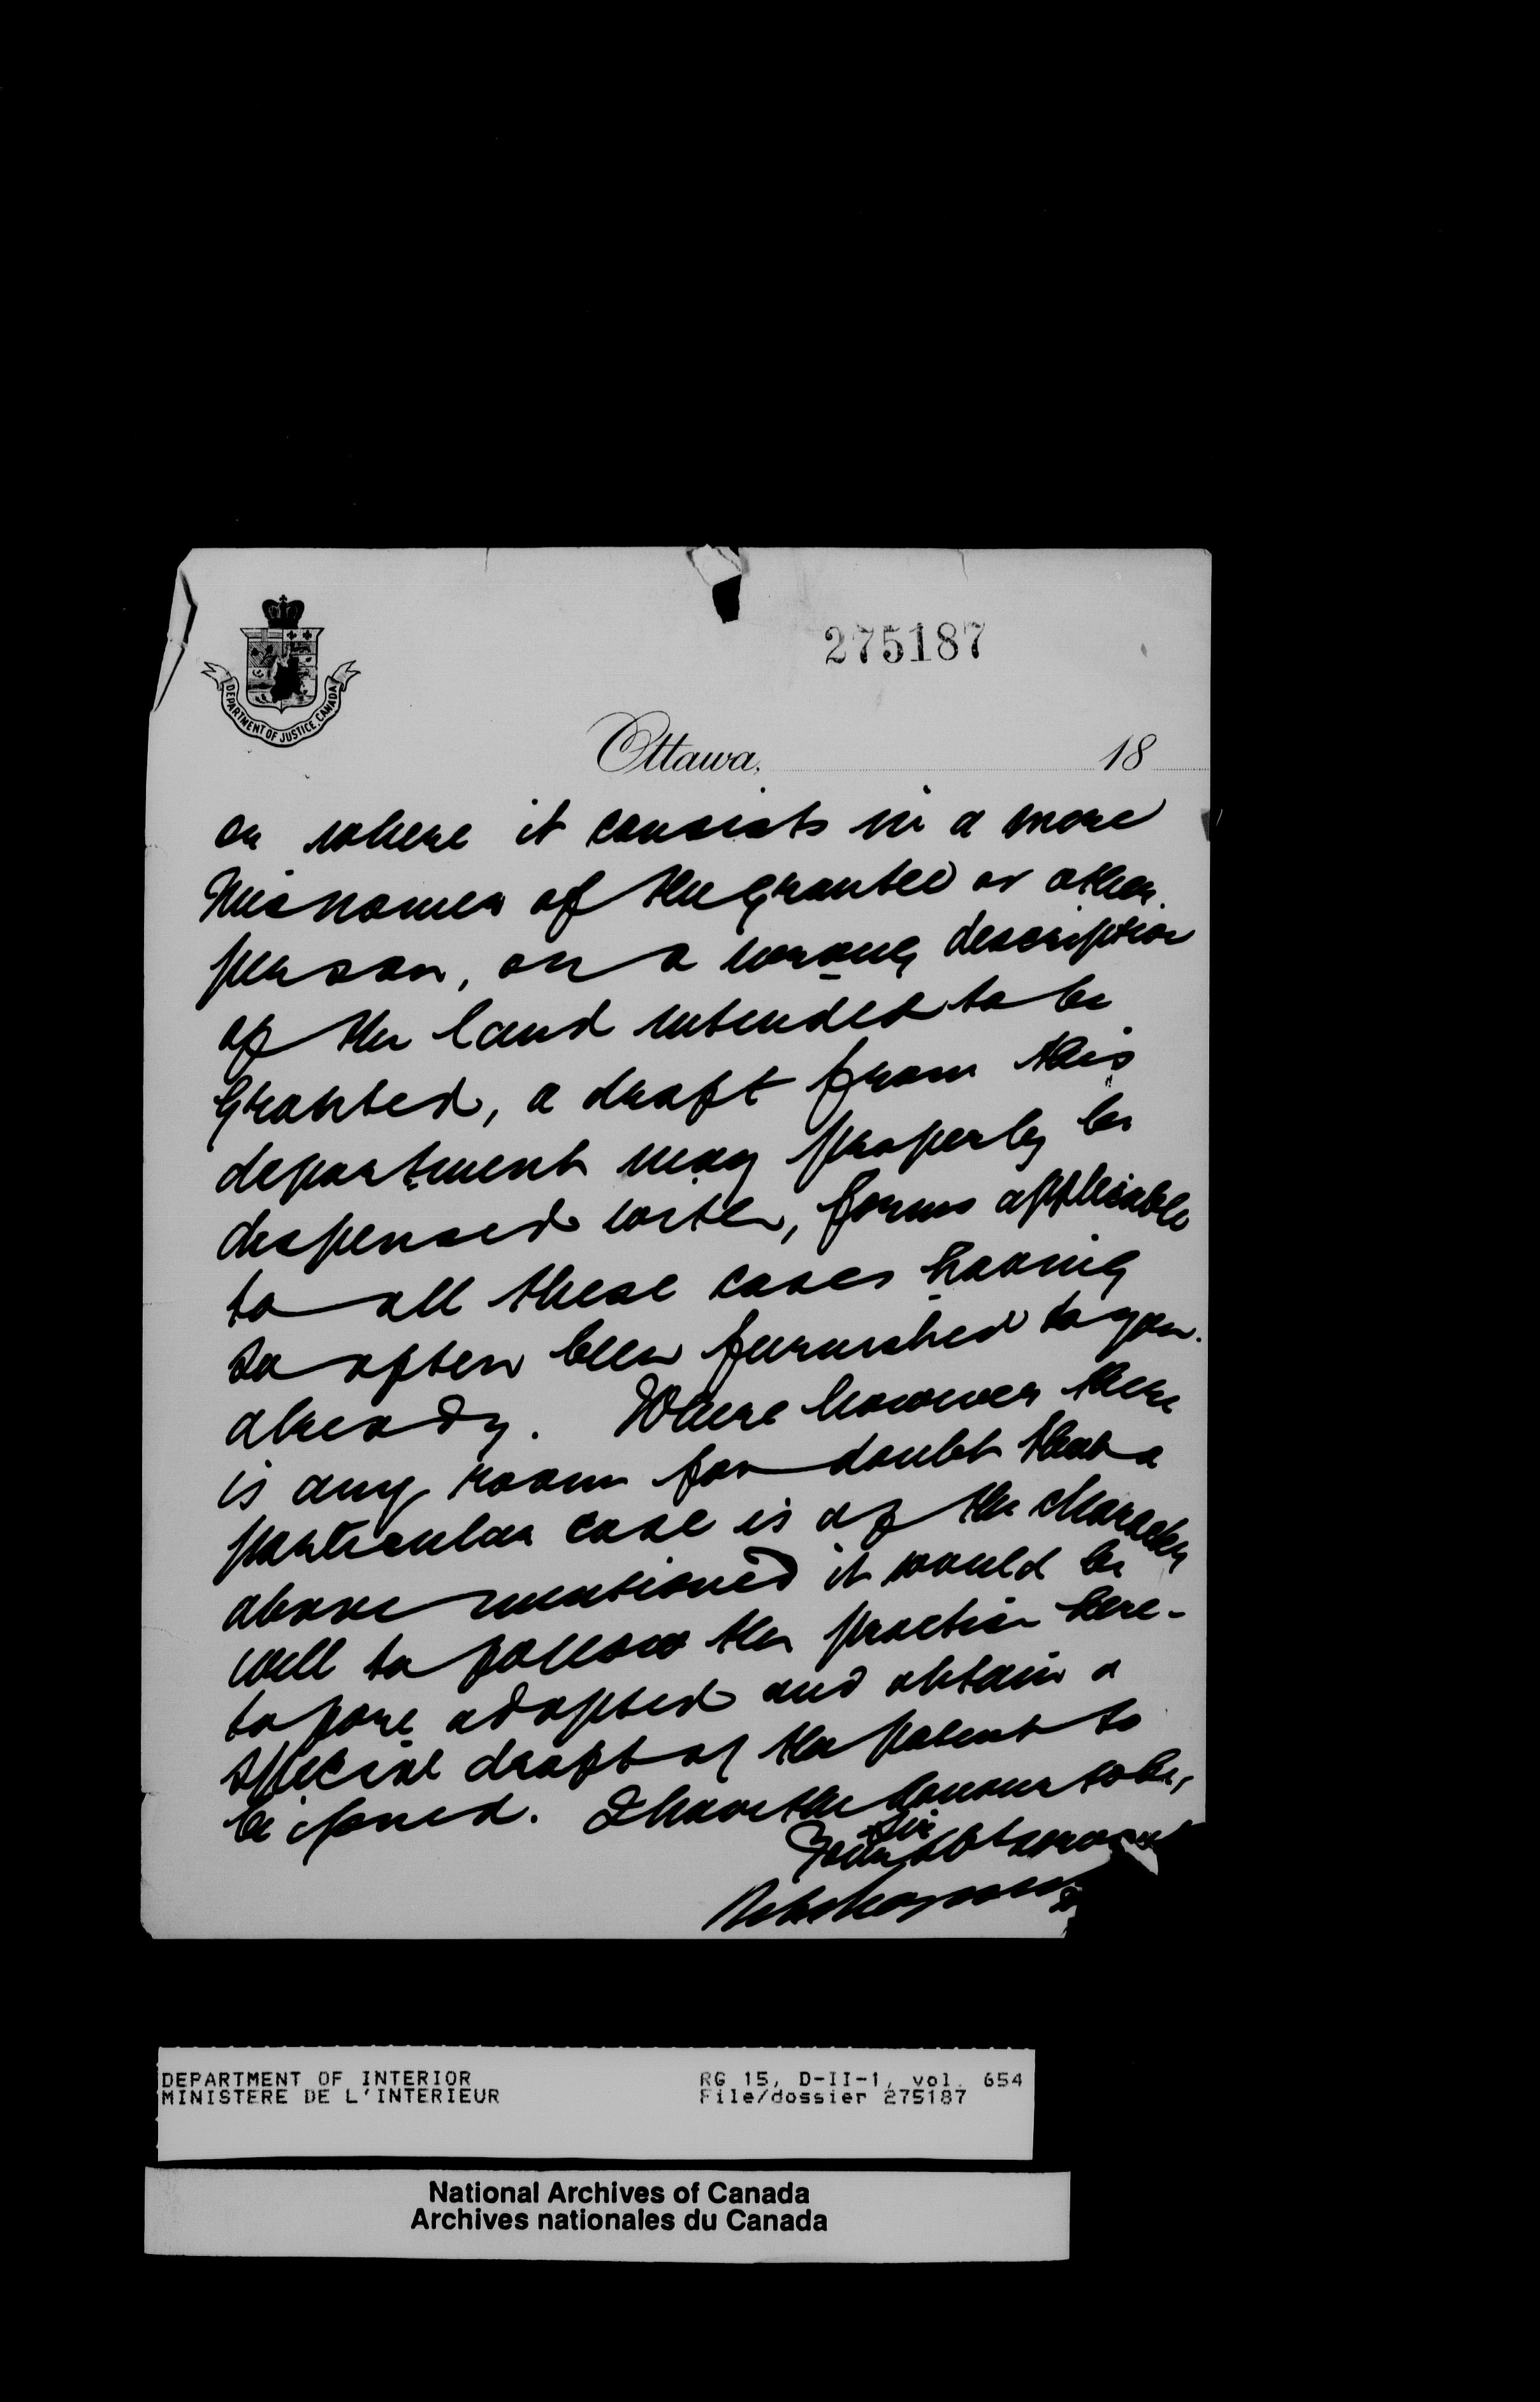 275187
DEPARTMENT OF JUSTICE, CANADA
Ottawa, 18
or where it consists in a mere
misnomer of the grantee or other
person, or a wrong description
of the land intended to be
granted, a draft from this
department may properly be
dispensed with, forms applicable
to all these cases having
so often been furnished to you
already. Where however there
is any room for doubt that a
particular case is of the character
above mentioned it would be
well to follow the practice here-
tofore adopted and obtain a
special draft of the patent to
be issued. I have the honour to be,
Sir
Your obt servant
DEPARTMENT OF INTERIOR RG 15, D-II-1, vol. 654
MINISTERE DE L'INTERIEUR File/dossier 275187
National Archives of Canada
Archives nationales du Canada